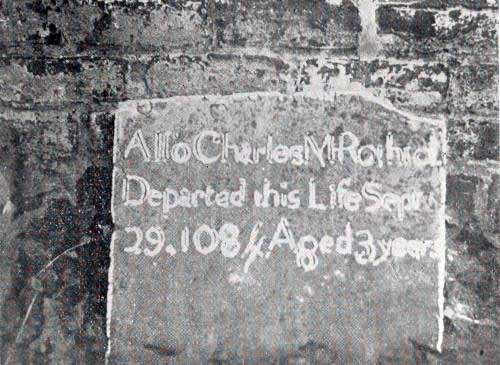 Allo Charles McRothie
Departed this Life Sepr
29. 1084. Aged 3 years